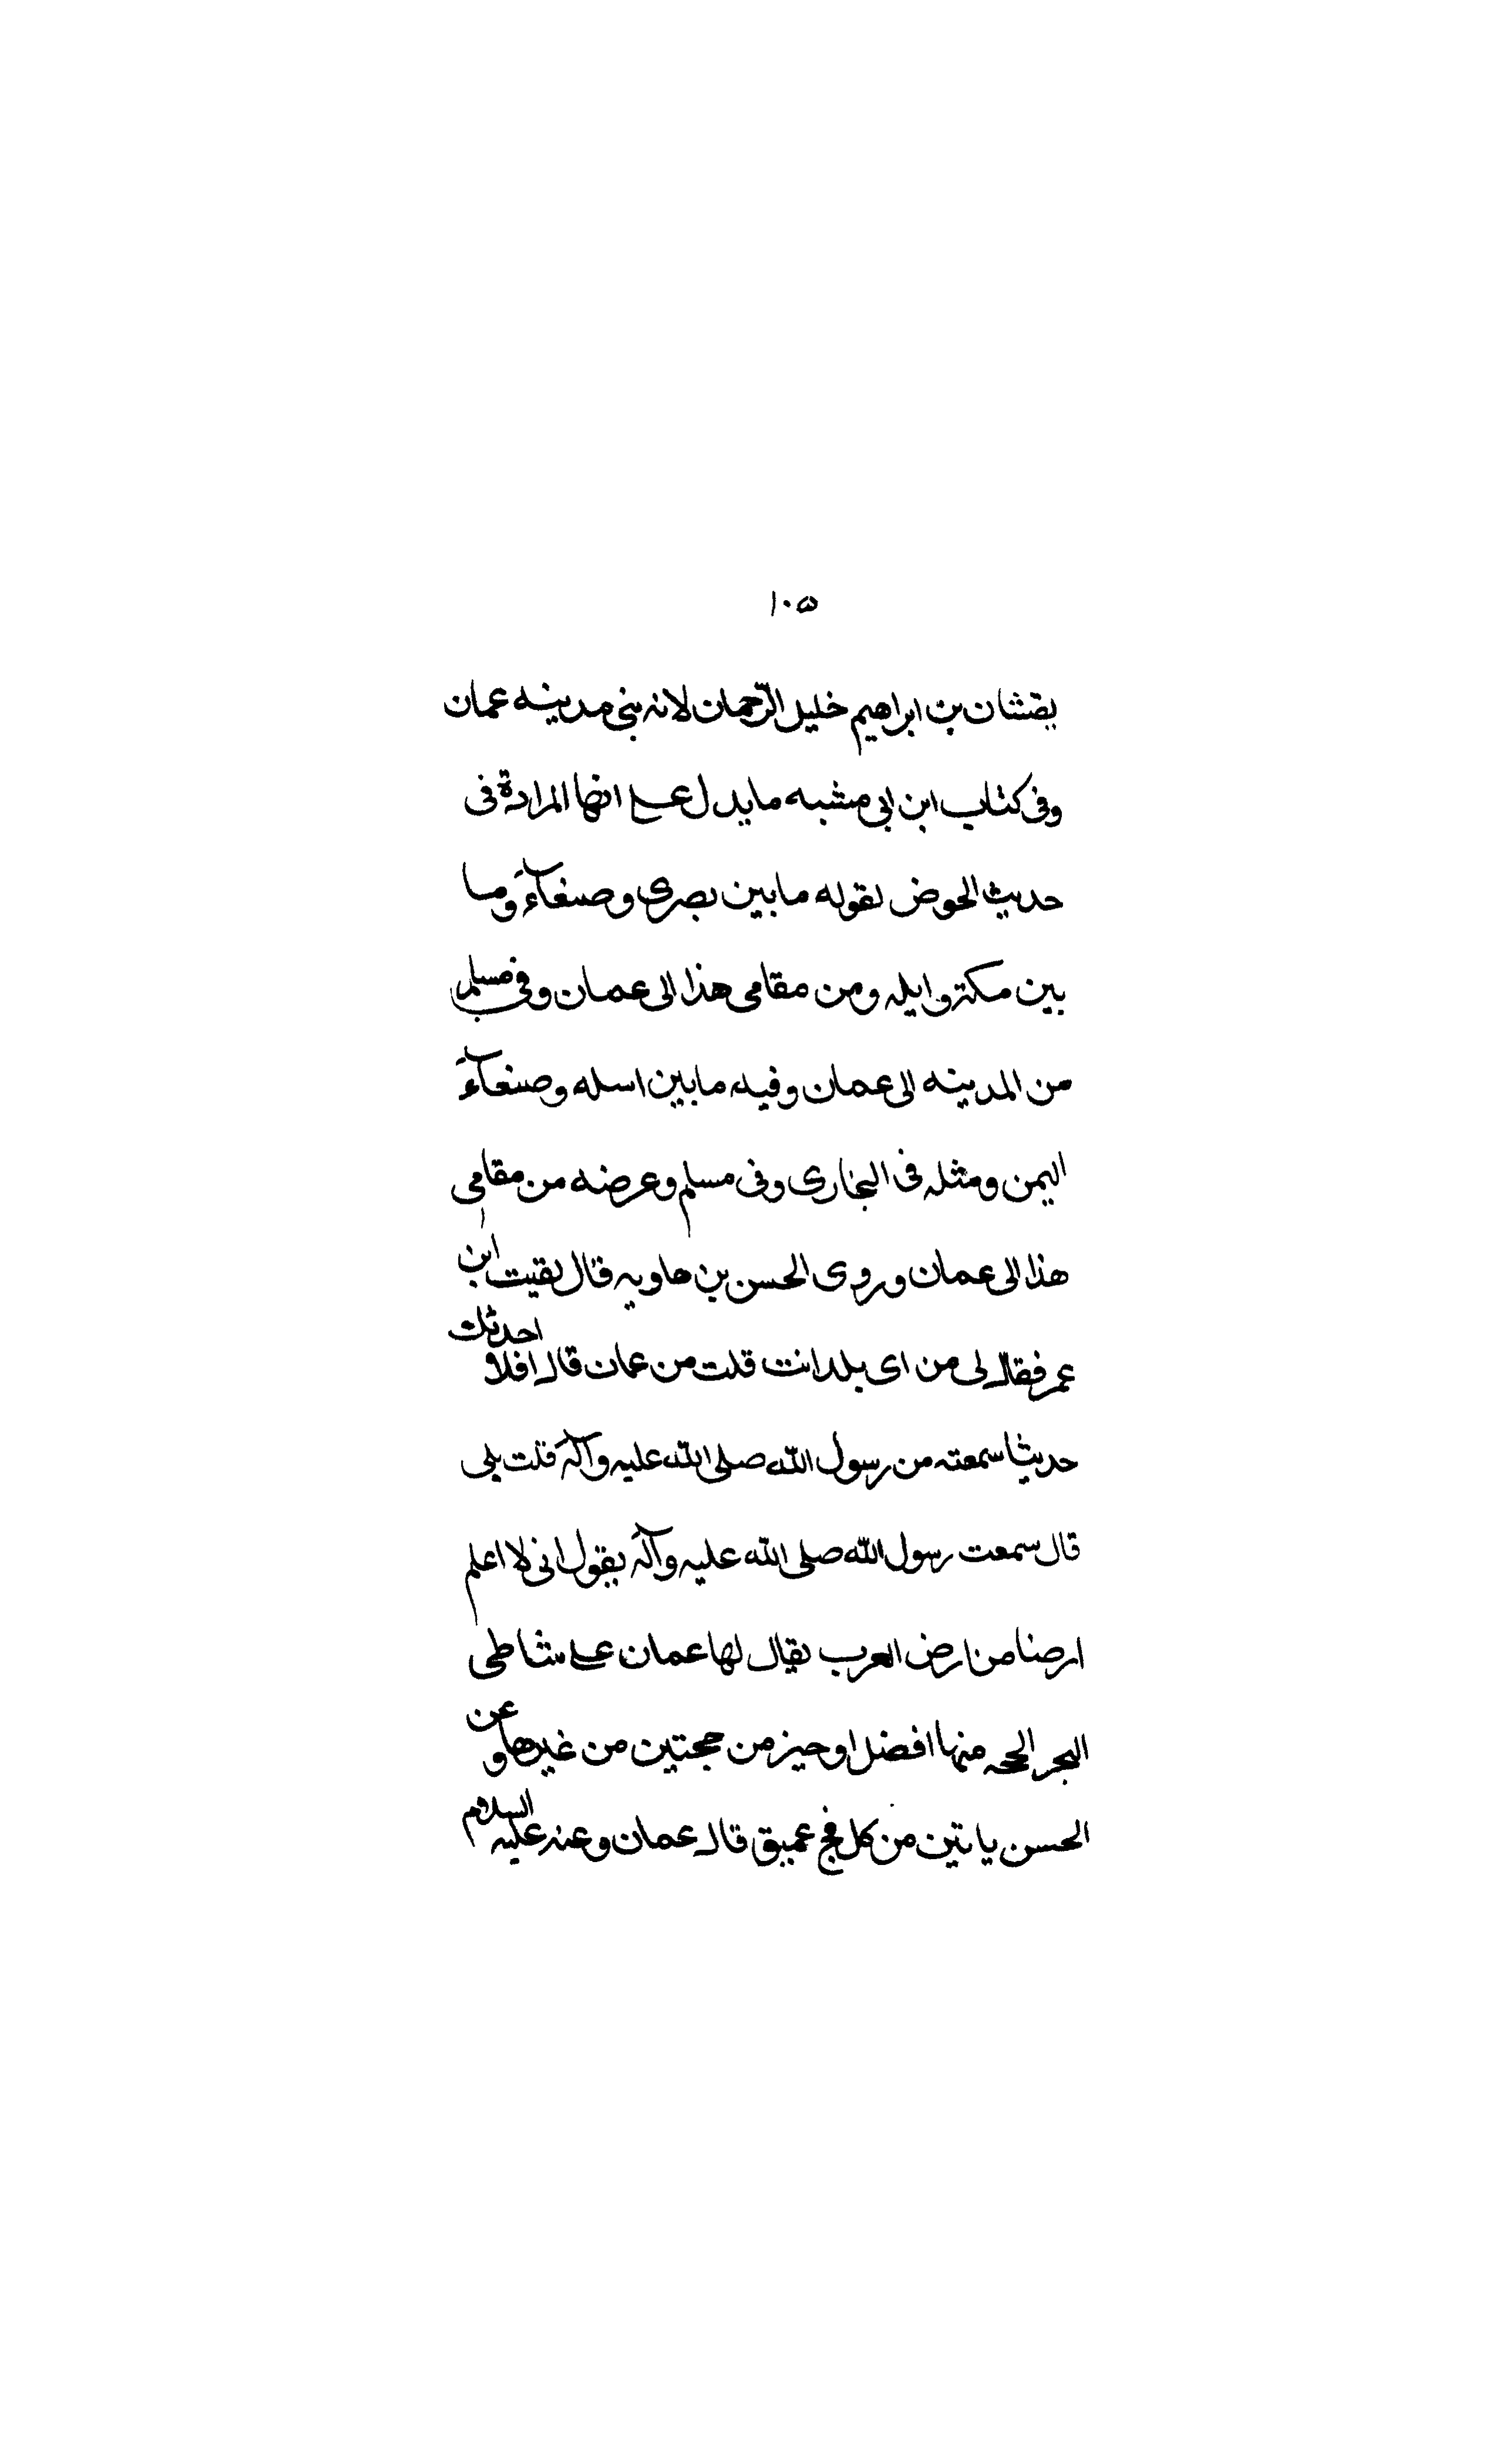 ١٠٥
يقشان بن ابراهيم خليل الرّحمان لانه بنى مدينه عمان
وفى كتاب ابن ابى مشبه ما يدل على انها المرادة فى
حديث الحوض لقوله ما بين بصرى وصنعآءَ وما
بين مكة وايله ومن مقامى هذا الى عمان وفى مسلم
من المدينه الى عمان وفيه ما بين اسله وصنعآءَ
اليمن ومثله فى البخارى وفى مسلم وعرضه من مقامى
هذا الى عمان وروى الحسن بن هاويه قال لقيت ابن
عمر فقال لى من اى بلد انت قلت من عمان قال افلا احدثك
حديثا سمعته من رسول الله صلى الله عليه وآله قلت بلى
قال سمعت رسول الله صلى الله عليه وآله يقول انى لا اعلم
ارضا من ارض العرب يقال لها عمان على شاطى
البحر الحجه منها افضل او خير من حجتين من غيرها وعن
الحسن ياتين من كل فج عميق قال عمان وعنه عليه السلام